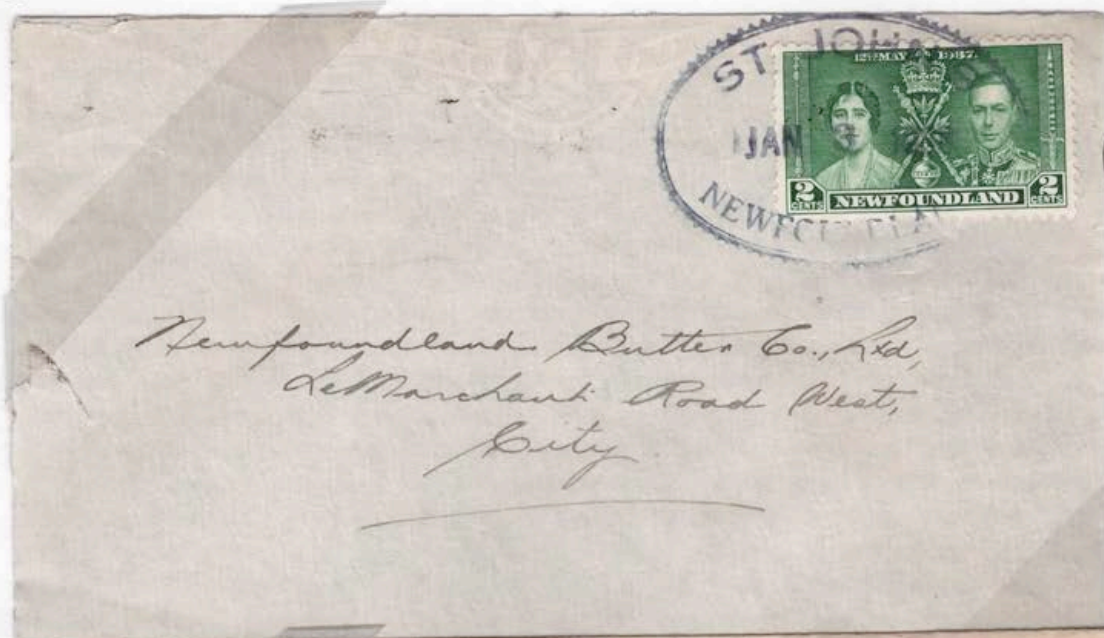 ST. JOHN'S
12TH MAY 1937.
JAN
2 CENTS NEWFOUNDLAND 2 CENTS
Newfoundland Butter Co., Ltd,
LeMarchant Road West,
City